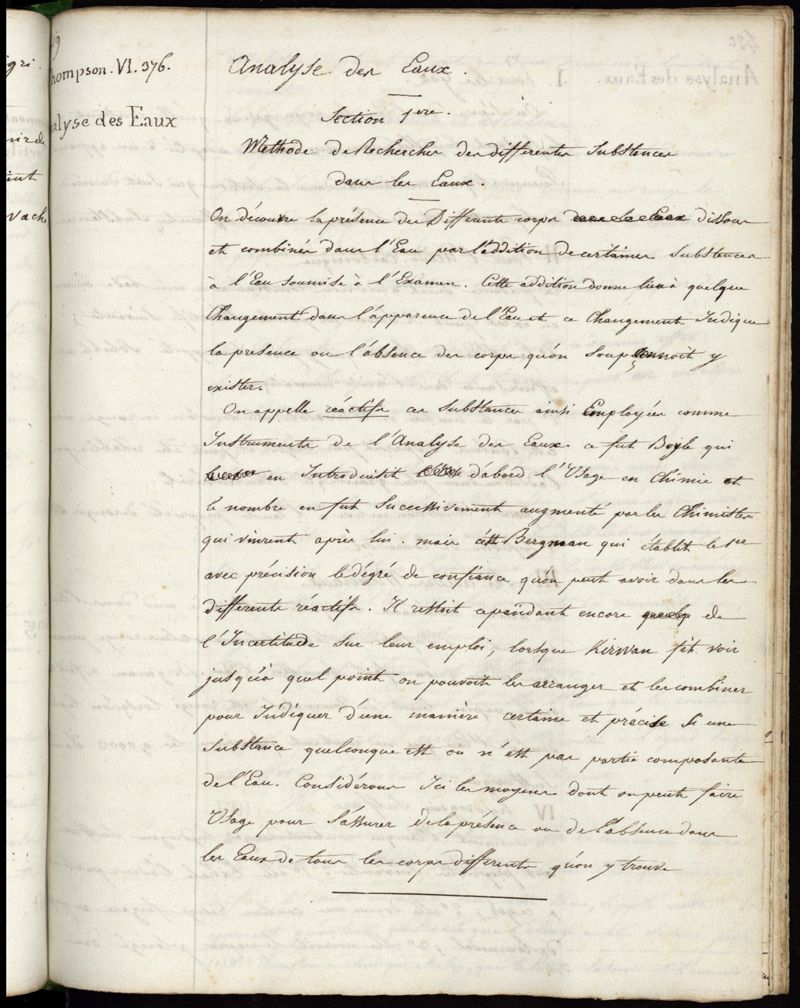 hompson. VI. 376.
alyse des Eaux
vache
Analyse des Eaux.
Section 1ere.
Methode de Rechercher des differentes Substances
dans les Eaux.
On découvre la présence des Differents corps dans les Eaux dissous
et combinés dans l'Eau par l'addition de certaines Substances
à l'Eau soumise à l'Examen. Cette addition donne lieu à quelque
Changement dans l'apparence de l'Eau et ce Changement Indique
la presence ou l'absence des corps qu'on soupçonnoit y
exister.
On appelle réactifs ces Substances ainsi Employées comme
Instruments de l'Analyse des Eaux. ce fut Boyle qui
en Introduisit d'abord l'Usage en Chimie et
le nombre en fut Successivement augmenté par les Chimistes
qui vinrent après lui. mais c'est Bergman qui établit le 1er
avec précision le dégré de confiance qu'on peut avoir dans les
differents réactifs. Il restoit cependant encore de
l'Incertitude sur leur emploi, lorsque Kirwan fit voir
jusqu'à quel point on pouvoit les arranger et les combiner
pour Indiquer d'une manière certaine et précise si une
Substance quelconque est ou n'est pas partie composante
de l'Eau. Considérons Ici les moyens dont on peut faire
Usage pour s'assurer de la présence ou de l'absence dans
les Eaux de tous les corps differents qu'on y trouve